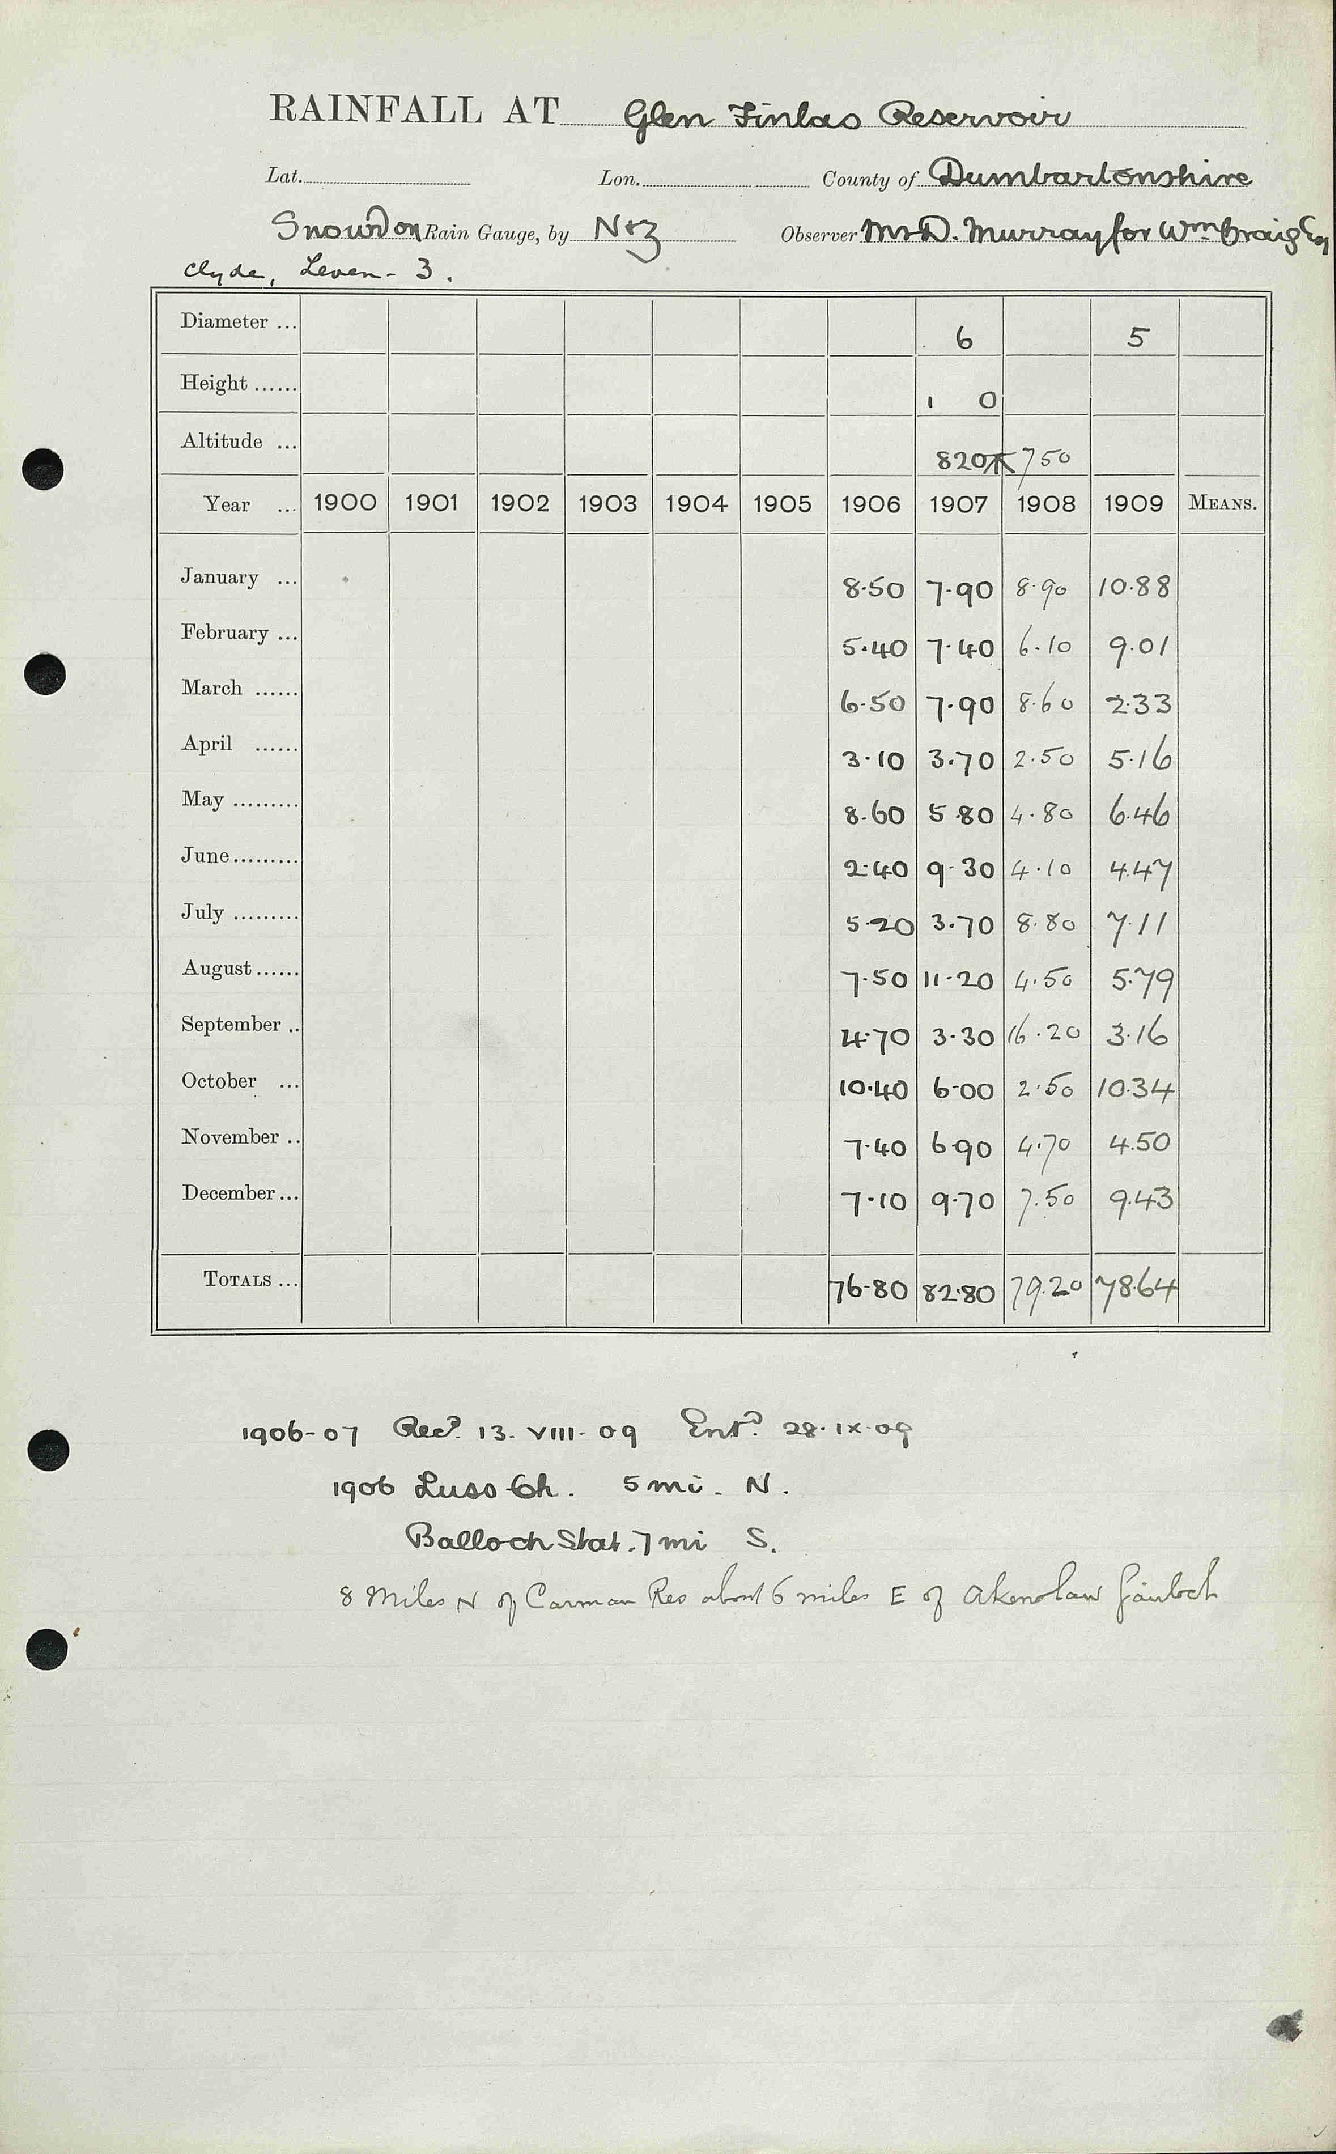 RAINFALL AT Glen Finlas Reservoir
Lat. Lon. County of Dumbartonshire
Snowdon Rain Gauge, by N&Z Observer Mr D. Murray for Wm Craig Esq
Clyde, Leven - 3.
Diameter ... 6 5
Height ...... 1 0
Altitude ... 820ft 750
Year ... 1900 1901 1902 1903 1904 1905 1906 1907 1908 1909 MEANS.
January ... 8.50 7.90 8.90 10.88
February ... 5.40 7.40 6.10 9.01
March ...... 6.50 7.90 8.60 2.33
April ...... 3.10 3.70 2.50 5.16
May ......... 8.60 5.80 4.80 6.46
June ......... 2.40 9.30 4.10 4.47
July ......... 5.20 3.70 8.80 7.11
August ...... 7.50 11.20 4.50 5.79
September .. 4.70 3.30 16.20 3.16
October ... 10.40 6.00 2.50 10.34
November .. 7.40 6.90 4.70 4.50
December ... 7.10 9.70 7.50 9.43
TOTALS ... 76.80 82.80 79.20 78.64
1906-07 Recd. 13.VIII.09 Entd. 28.IX.09
1906 Luss Ch. 5 mi. N.
Balloch Stat. 7 mi S.
8 Miles N of Carman Res about 6 miles E of